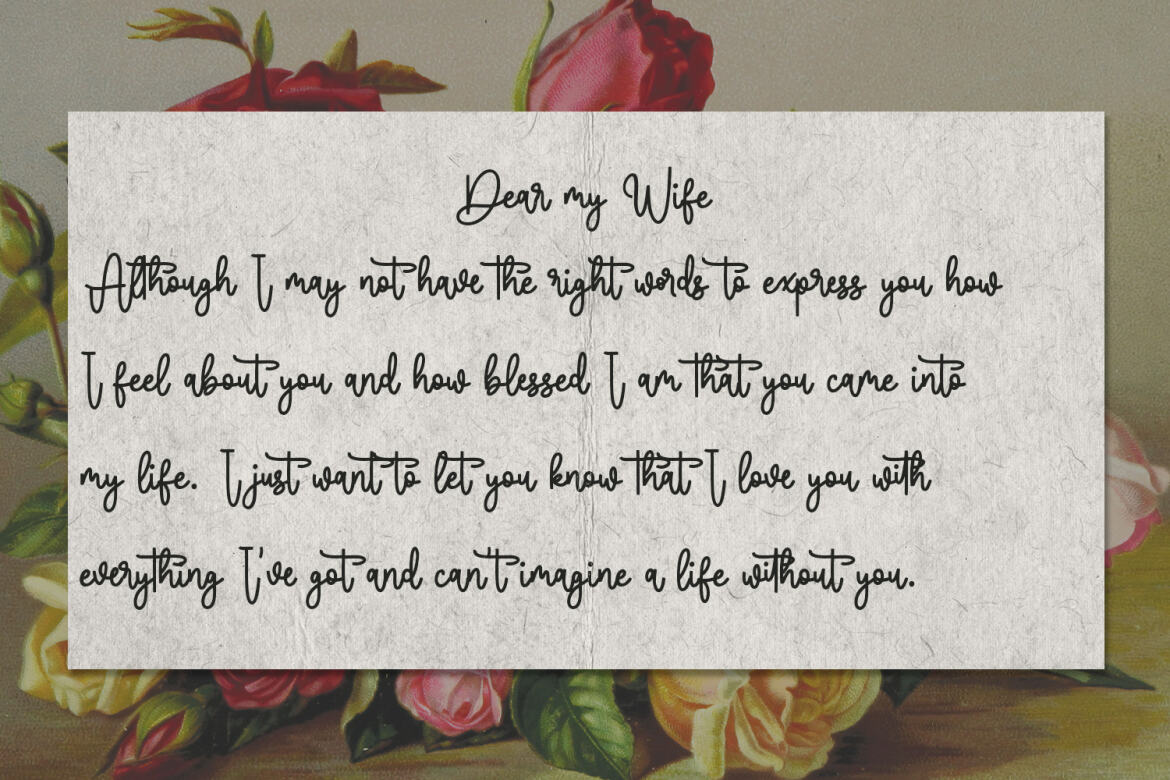 Dear my Wife
Although I may not have the right words to express you how
I feel about you and how blessed I am that you came into
my life. I just want to let you know that I love you with
everything I've got and can't imagine a life without you.